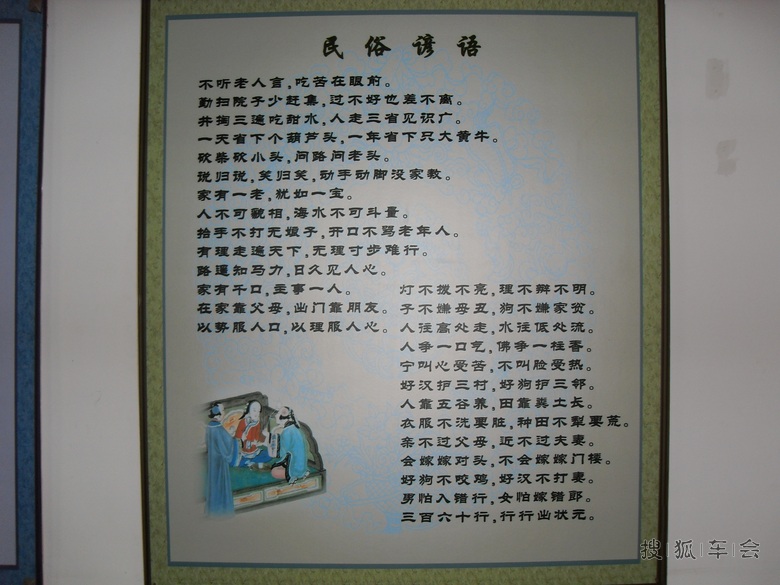 民俗谚语
不听老人言，吃苦在眼前。
勤扫院子少赶集，过不好也差不离。
井掏三遍吃甜水，人走三省见识广。
一天省下个葫芦头，一年省下只大黄牛。
砍柴砍小头，问路问老头。
说归说，笑归笑，动手动脚没家教。
家有一老，就如一宝。
人不可貌相，海水不可斗量。
抬手不打无娘子，开口不骂老年人。
有理走遍天下，无理寸步难行。
路遥知马力，日久见人心。
家有千口，主事一人。
在家靠父母，出门靠朋友。
以势服人口，以理服人心。
灯不拨不亮，理不辩不明。
子不嫌母丑，狗不嫌家贫。
人往高处走，水往低处流。
人争一口气，佛争一柱香。
宁叫心受苦，不叫脸受热。
好汉护三村，好狗护三邻。
人靠五谷养，田靠粪土长。
衣服不洗要脏，种田不犁要荒。
亲不过父母，近不过夫妻。
会嫁嫁对头，不会嫁嫁门楼。
好狗不咬鸡，好汉不打妻。
男怕入错行，女怕嫁错郎。
三百六十行，行行出状元。
搜狐车会